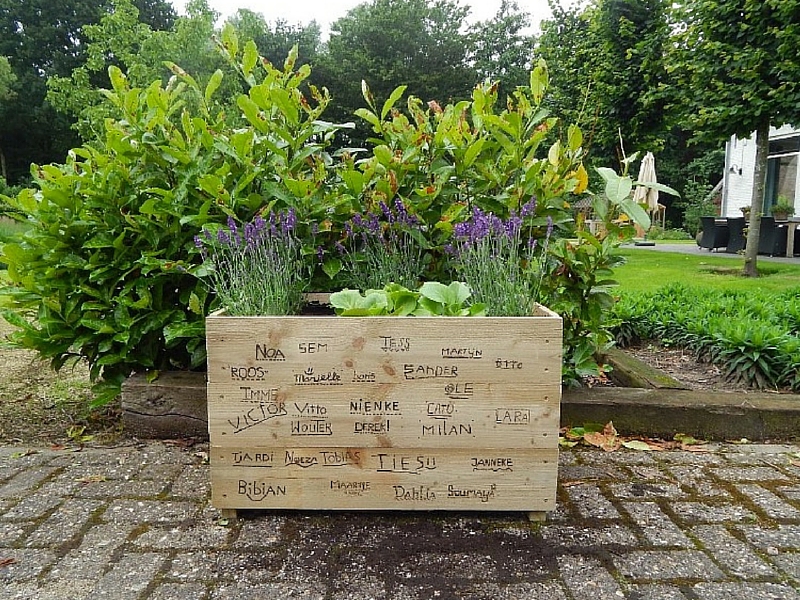 NOA SEM TESS MARTIJN
"ROOS" Maruelle Loris SANDER OTTO
IMME OLE
VICTOR Vitto NIENKE CATO LARA
WOUTER DEREK MILAN
TJARDI Noeza TOBIAS TIESU JANNEKE
Bibian MAARTJE Dahlia Soumaya